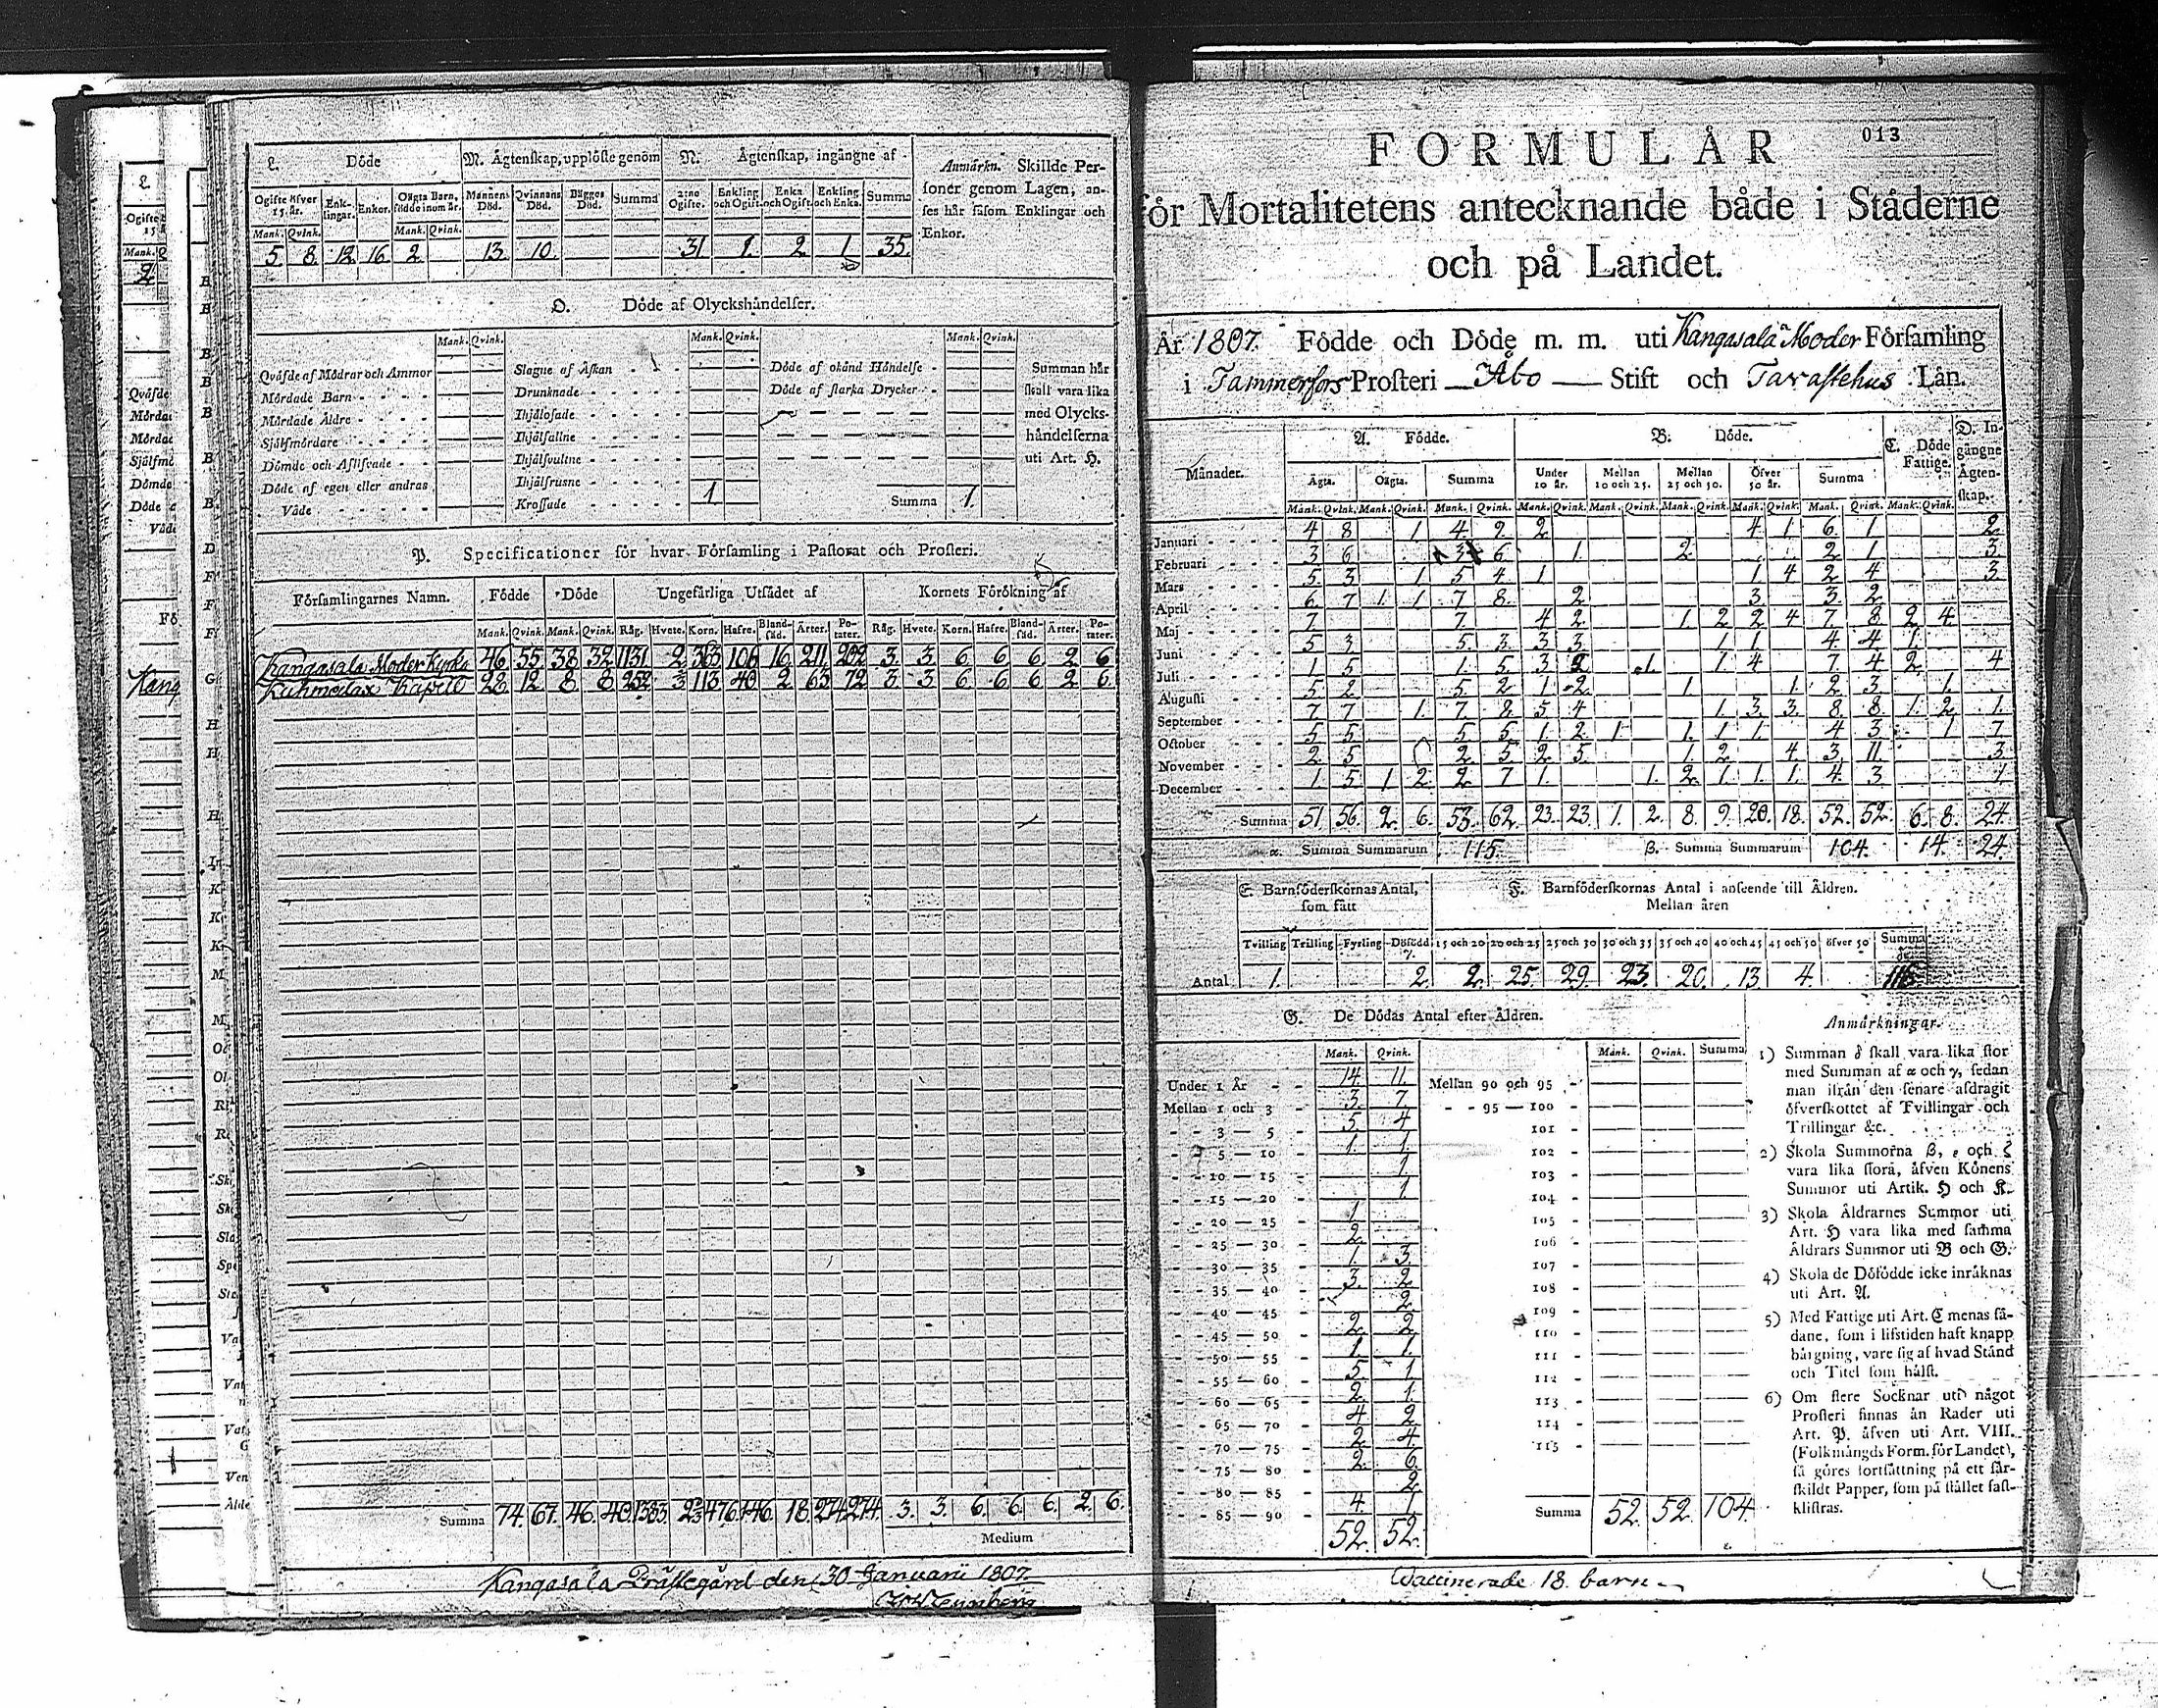 L. Döde M. Ägtenskap, upplöste genom N. Ägtenskap, ingångne af Anmärkn. Skillde Per-
soner genom Lagen, an-
ses här såsom Enklingar och
Enkor.
Ogifte öfver 15 år. Enk-lingar. Enkor. Oägta Barn, födde inom år. Mannens Död. Qvinnans Död. Bägges Död. Summa 2:ne Ogifte. Enkling och Ogift. Enka och Ogift. Enkling och Enka. Summa
Mank. Qvink. Mank. Qvink.
5. 8. 12. 16. 2. 13. 10. 31. 1. 2. 1. 35.
O. Döde af Olyckshändelser.
Mank. Qvink. Mank. Qvink. Mank. Qvink.
Qväfde af Mödrar och Ammor Slagne af Åskan Döde af okänd Händelse Summan här
Mördade Barn Drunknade Döde af starka Drycker skall vara lika
Mördade Äldre Ihjälslade med Olycks-
Sjålfmördare Ihjälfallne händelserna
Dömde och Aflifvade Ihjälsvultne uti Art. H.
Döde af egen eller andras Ihjälfrusne
Våde Krossade 1 Summa 1.
P. Specificationer för hvar Församling i Pastorat och Prosteri.
Församlingarnes Namn. Födde Döde Ungefärliga Utsädet af Kornets Förökning af
Mank. Qvink. Mank. Qvink. Råg. Hvete. Korn. Hafre. Bland-säd. Ärter. Po-tater. Råg. Hvete. Korn. Hafre. Bland-säd. Ärter. Po-tater.
Kangasala Moder Kyrka 46 55 38 32 1131 2 363 106 16 211 202 3 3 6 6 6 2 6
Kuhmalax Kapell 28 12 8 8 252 2/3 113 40 2 63 72 3 3 6 6 6 2 6
Summa 74. 67. 46. 40. 1383 2 2/3 476. 146. 18. 274. 274. 3. 3. 6. 6. 6. 2. 6.
Medium
Kangasala Prästegård den 30 Januarii 1807.
013
FORMULÄR
för Mortalitetens antecknande både i Städerne
och på Landet.
År 1807. Födde och Döde m. m. uti Kangasala Moder Församling
i Tammerfors Prosteri Åbo Stift och Tavastehus Län.
Månader. A. Födde. B. Döde. C. Döde Fattige. D. In-gångne Ägten-skap.
Ägta. Oägta. Summa Under 10 år. Mellan 10 och 25. Mellan 25 och 50. Öfver 50 år. Summa
Mank. Qvink. Mank. Qvink. Mank. Qvink. Mank. Qvink. Mank. Qvink. Mank. Qvink. Mank. Qvink. Mank. Qvink. Mank. Qvink.
Januari 4 8 1 4. 9. 2 4 1 6. 1 2
Februari 3 6 3 6 1 2 2 1 3
Mars 5 3 1 5 4 1 1 4 2 4 3
April 6 7 1 1 7 8 2 3 3 2
Maj 7 7 4 2 1 2 2 4 7 8 2 4
Juni 5 3 5 3 3 3 1 1 4 4 1
Juli 1 5 1 5 3 2 1 1 4 7 4 2 4
Augusti 5 2 5 2 1 2 1 1 2 3 1
September 7 7 1 7 8 5 4 1 3 3 8 8 1 2 1
October 5 5 5 5 1 2 1 1 1 1 4 3 1 7
November 2 5 2 5 2 5 1 2 4 3 11
December 1 5 1 2 2 7 1 1 2 1 1 1 4 3
Summa 51. 56. 2. 6. 53. 62. 23. 23. 1. 2. 8. 9. 20. 18. 52. 52. 6. 8. 24.
α. Summa Summarum 115. β. Summa Summarum 104. 14. 24.
E. Barnföderskornas Antal, som fått F. Barnföderskornas Antal i anseende till Åldren.
Mellan åren
Tvilling Trilling Fyrling Dödfödd γ. 15 och 20 20 och 25 25 och 30 30 och 35 35 och 40 40 och 45 45 och 50 öfver 50 Summa δ.
Antal 1. 2. 2. 25 29. 23. 20. 13 4. 116.
G. De Dödas Antal efter Åldren.
Mank. Qvink. Mank. Qvink. Summa
Under 1 År 14. 11. Mellan 90 och 95
Mellan 1 och 3 3. 7. 95 — 100
3 — 5 5. 4 101
5 — 10 1. 1. 102
10 — 15 1. 103
15 — 20 1. 104
20 — 25 1 105
25 — 30 2. 106
30 — 35 1. 3. 107
35 — 40 3. 2 108
40 — 45 2. 109
45 — 50 2. 2 110
50 — 55 1. 1. 111
55 — 60 5. 1 112
60 — 65 2. 1. 113
65 — 70 4 2 114
70 — 75 2. 4. 115
75 — 80 2. 6.
80 — 85 2
85 — 90 4. 1 Summa 52. 52. 104.
52. 52.
Anmärkningar.
1) Summan δ skall vara lika stor
med Summan af α och γ, sedan
man ifrån den senare afdragit
öfverskottet af Tvillingar och
Trillingar &c.
2) Skola Summorna β, ε och ζ
vara lika stora, äfven Könens
Summor uti Artik. H och K.
3) Skola Åldrarnes Summor uti
Art. H vara lika med samma
Åldrars Summor uti B och G.
4) Skola de Döfödde icke inräknas
uti Art. A.
5) Med Fattige uti Art. C menas så-
dane, som i lifstiden haft knapp
bärgning, vare sig af hvad Stånd
och Titel som hälst.
6) Om flere Socknar uti något
Prosteri finnas än Rader uti
Art. P. äfven uti Art. VIII.
(Folkmängds Form. för Landet),
så göres fortsättning på ett sär-
skildt Papper, som på stället fast-
klistras.
Waccinerade 18. barn